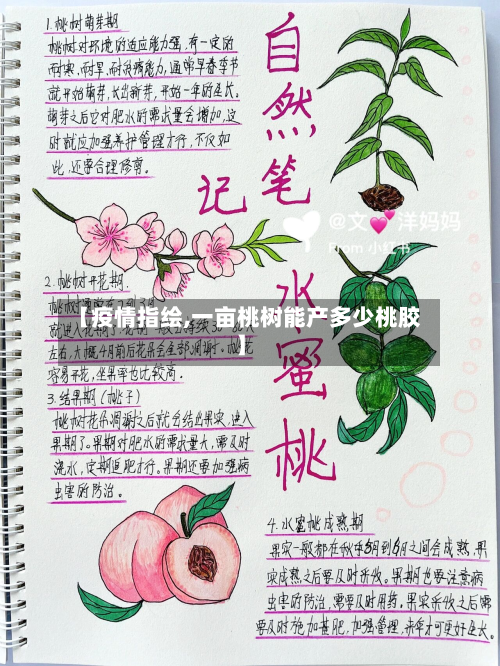 1.桃树萌芽期
桃树对环境的适应能力强,有一定的
耐寒,耐旱,耐农残能力,通常早春季节
就开始萌芽,长出新芽,开始一年的生长。
萌芽之后它对肥水的需求量会增加,这
时就应加强养护管理才行,不仅如
此,还要合理修剪。
自然笔
记
水蜜桃
@文💕洋妈妈
From 小红书
2.桃树开花期.
【疫情指绘,一亩桃树能产多少桃胶
】
左右,大概4月前后花朵会全部凋谢。桃花
容易开花,坐果率也比较高.
3.结果期(桃子)
桃树花朵凋谢之后就会结出果实,进入
果期了。果期对肥水的需求量大,需及时
浇水,定期追肥才行。果期还要加强病
虫害的防治。
4.水蜜桃成熟期
果实一般都在秋季8月到9月之间会成熟,果
实成熟之后要及时采收。果期也要注意病
虫害的防治,需要及时用药。果实采收之后需
要及时施加基肥,加强管理,来年才可更好生长。